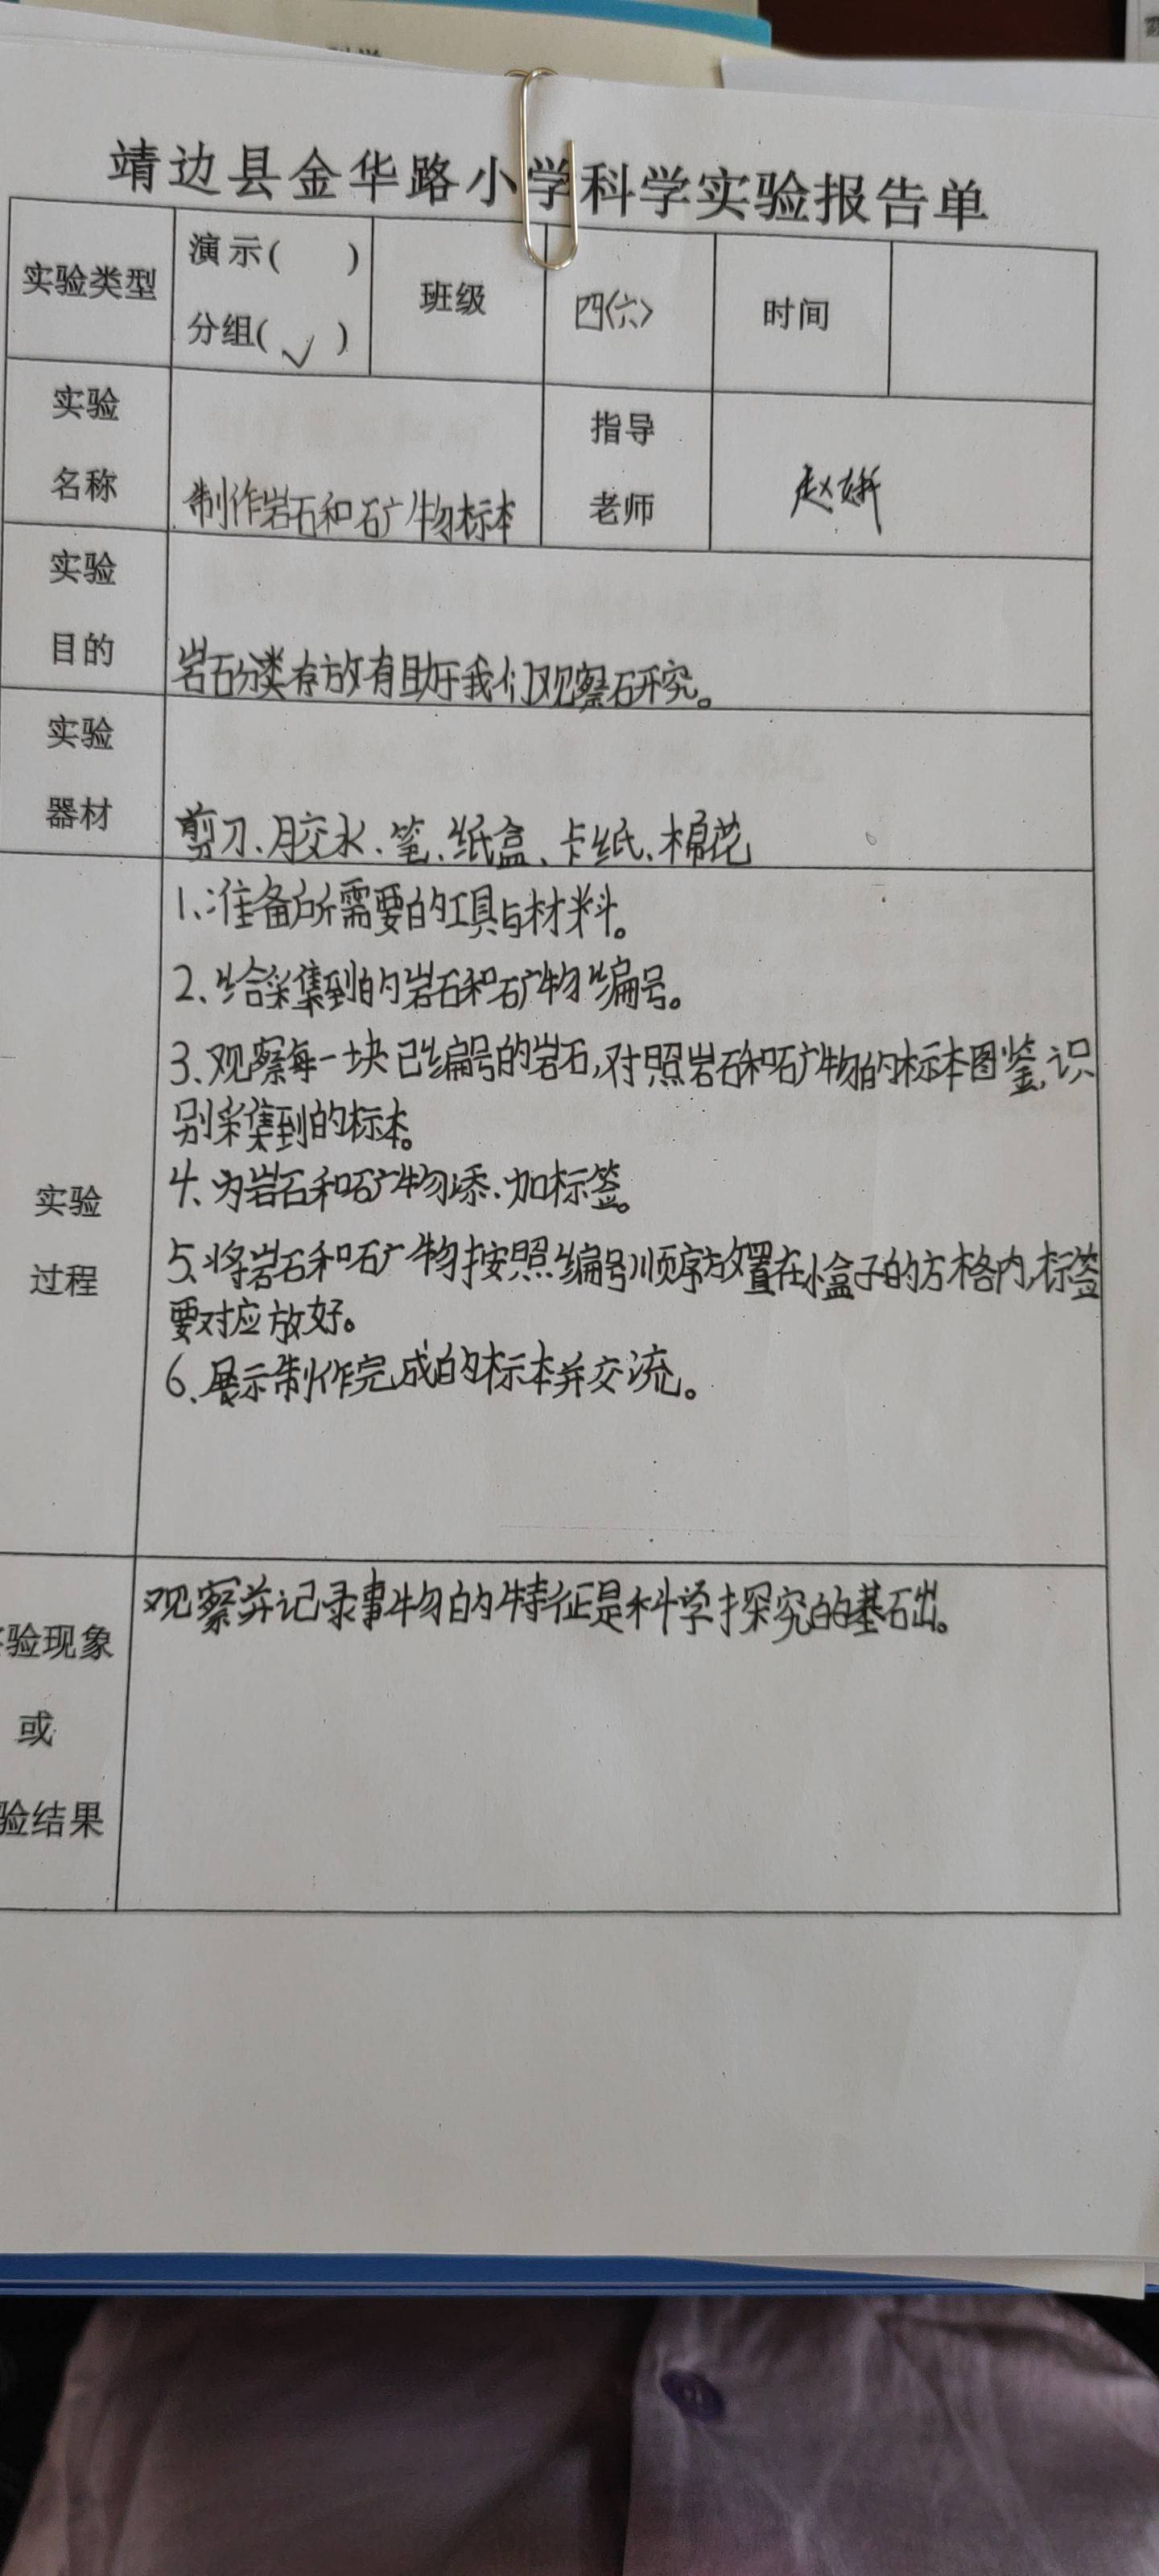 靖边县金华路小学科学实验报告单
实验类型
演示( )
分组(√)
班级
四(六)
时间
实验
名称
制作岩石和矿物标本
指导
老师
赵妍
实验
目的
岩石分类存放有助于我们观察研究。
实验
器材
剪刀、胶水、笔、纸盒、卡纸、棉花
实验
过程
1、准备所需要的工具与材料。
2、给采集到的岩石和矿物编号。
3、观察每一块已编号的岩石,对照岩石和矿物的标本图鉴,识
别采集到的标本。
4、为岩石和矿物添加标签。
5、将岩石和矿物按照编号顺序放置在小盒子的方格内,标签
要对应放好。
6、展示制作完成的标本并交流。
验现象
或
验结果
观察并记录事物的特征是科学探究的基础。